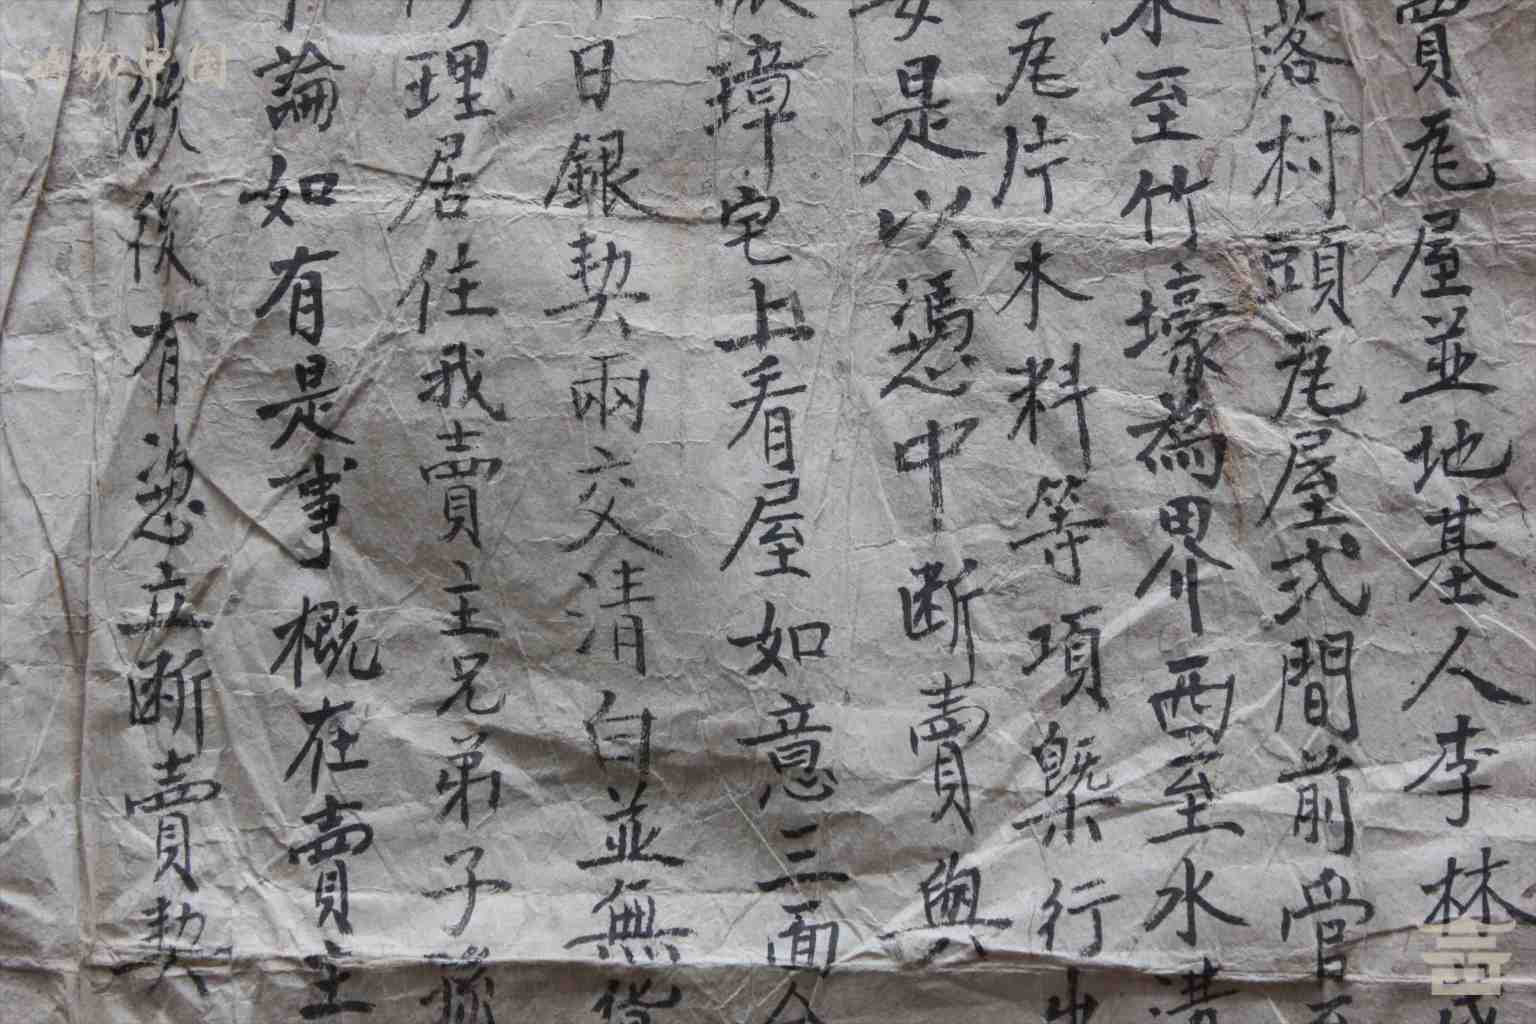 賣瓦屋並地基人李林
落村頭瓦屋弍間前營至
水至竹壕為界西至水溝
瓦片木料等項槩行出
安是以憑中断賣與
璋宅上看屋如意三面
日銀契兩交清白並無
理居住我賣主兄弟子孫
論如有是事概在賣主
欲後有憑立断賣契